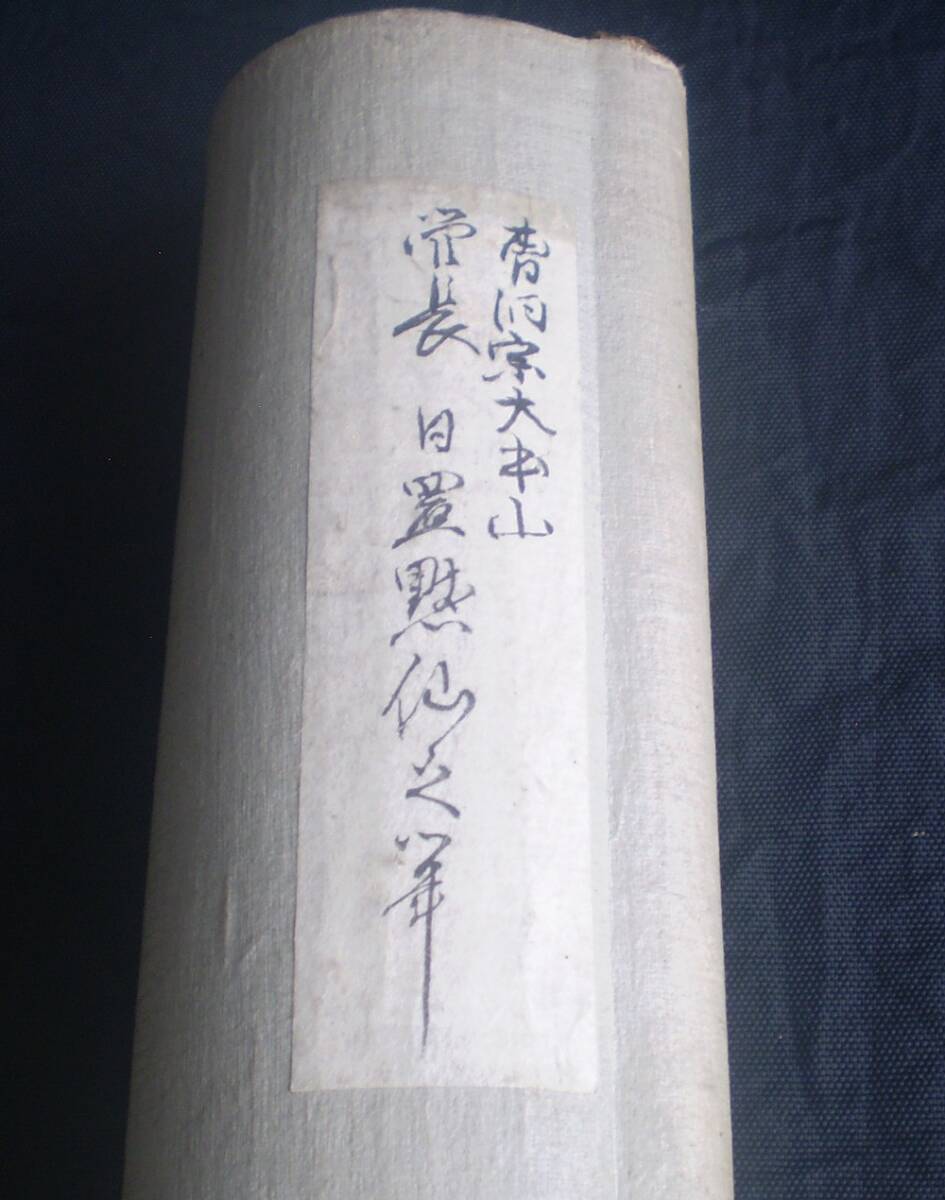 曹洞宗大本山
管長 日置黙仙之筆